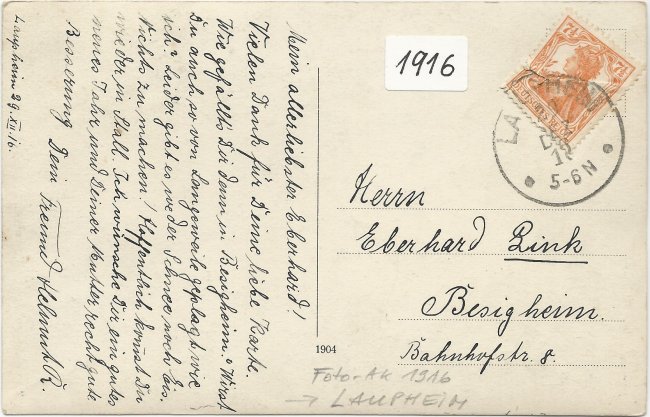 Mein allerliebster Eberhard!
Vielen Dank für Deine liebe Karte.
Wie gefällts Dir denn in Besigheim? Wirst
Du auch so von Langeweile geplagt wie
ich? Leider gibt es weder Schnee noch Eis.
Nichts zu machen! Hoffentlich kommst Du
wieder in Stall. Ich wünsche Dir ein gutes
neues Jahr und Deiner Mutter recht gute
Besserung Dein Freund Helmut R.
Laupheim 29.XII.16.
1916
7½ 7½
5-6N
Herrn
Eberhard Link
Besigheim.
Bahnhofstr. 8.
1904
Foto-AK 1916
→ LAUPHEIM